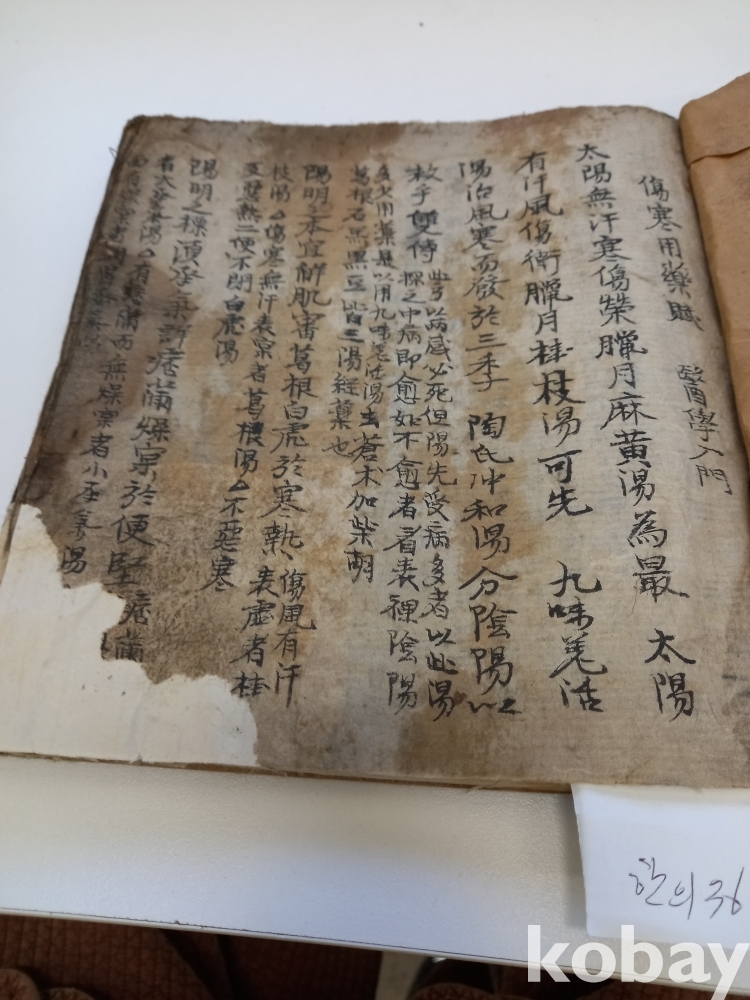 傷寒用藥賦 醫學入門
太陽無汗寒傷榮臘月麻黃湯為最 太陽
有汗風傷衛臘月桂枝湯可先 九味羌活
湯治風寒而發於三季 陶氏冲和湯分陰陽以
救乎雙傳
此方以兩感必死但陽先受病多者以此湯
探之中病即愈如不愈者看表裡陰陽
多少用藥是以用九味羌活湯去蒼术加柴胡
葛根石羔黑豆皆三陽經藥也
陽明之本宜解肌審葛根白虎於寒熱
傷風有汗
枝湯△傷寒無汗表實者葛根湯△不惡寒
表虛者桂
惡熱二便不閉白虎湯
陽明之標須承氣許痞滿燥實於便堅
痞滿
者大承氣湯△有痞滿而無燥實者小承氣湯
한의
kobay